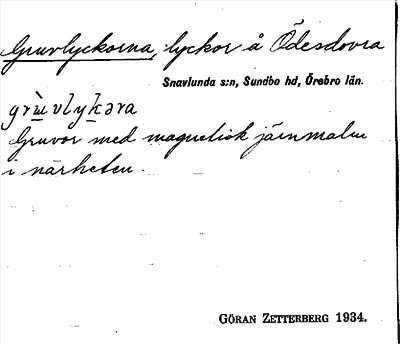 Gruvlyckorna, lyckor å Ödesdovra
Snavlunda s:n, Sundbo hd, Örebro län.
grùvlykəra
Gruvor med magnetisk järnmalm
i närheten.
GÖRAN ZETTERBERG 1934.